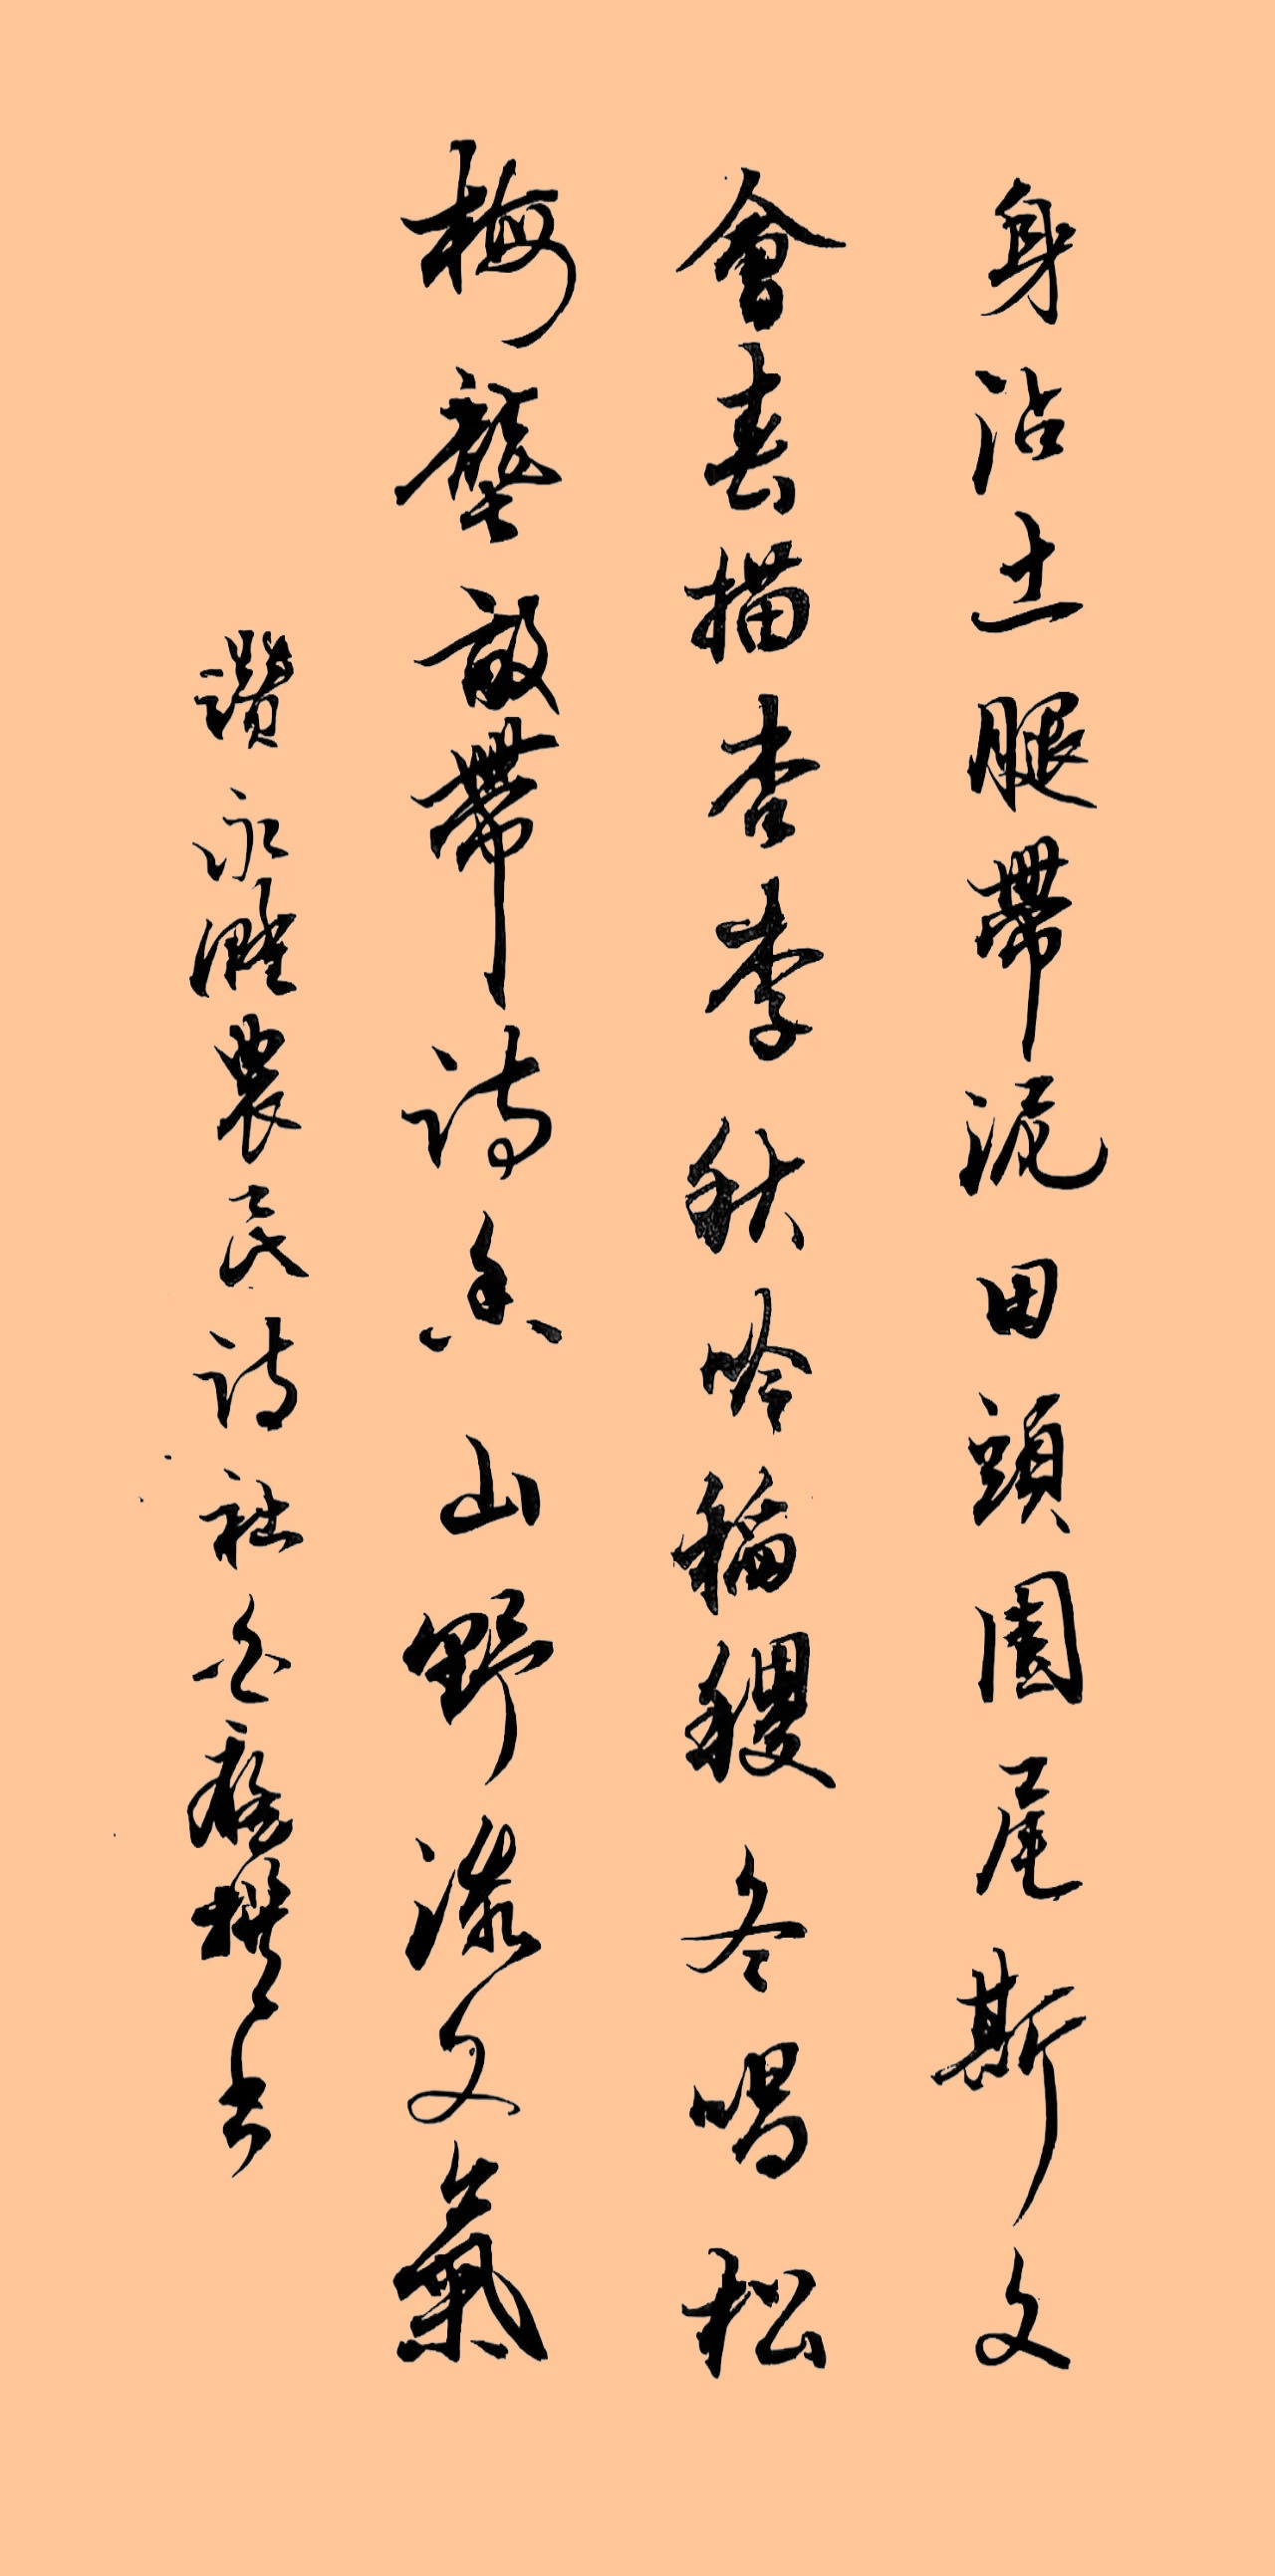 身沾土腿帶泥田頭園尾斯文
會春描杏李秋吟稻稷冬唱松
梅壟畝帶詩香山野添文氣
讚永隆農民詩社 撰書